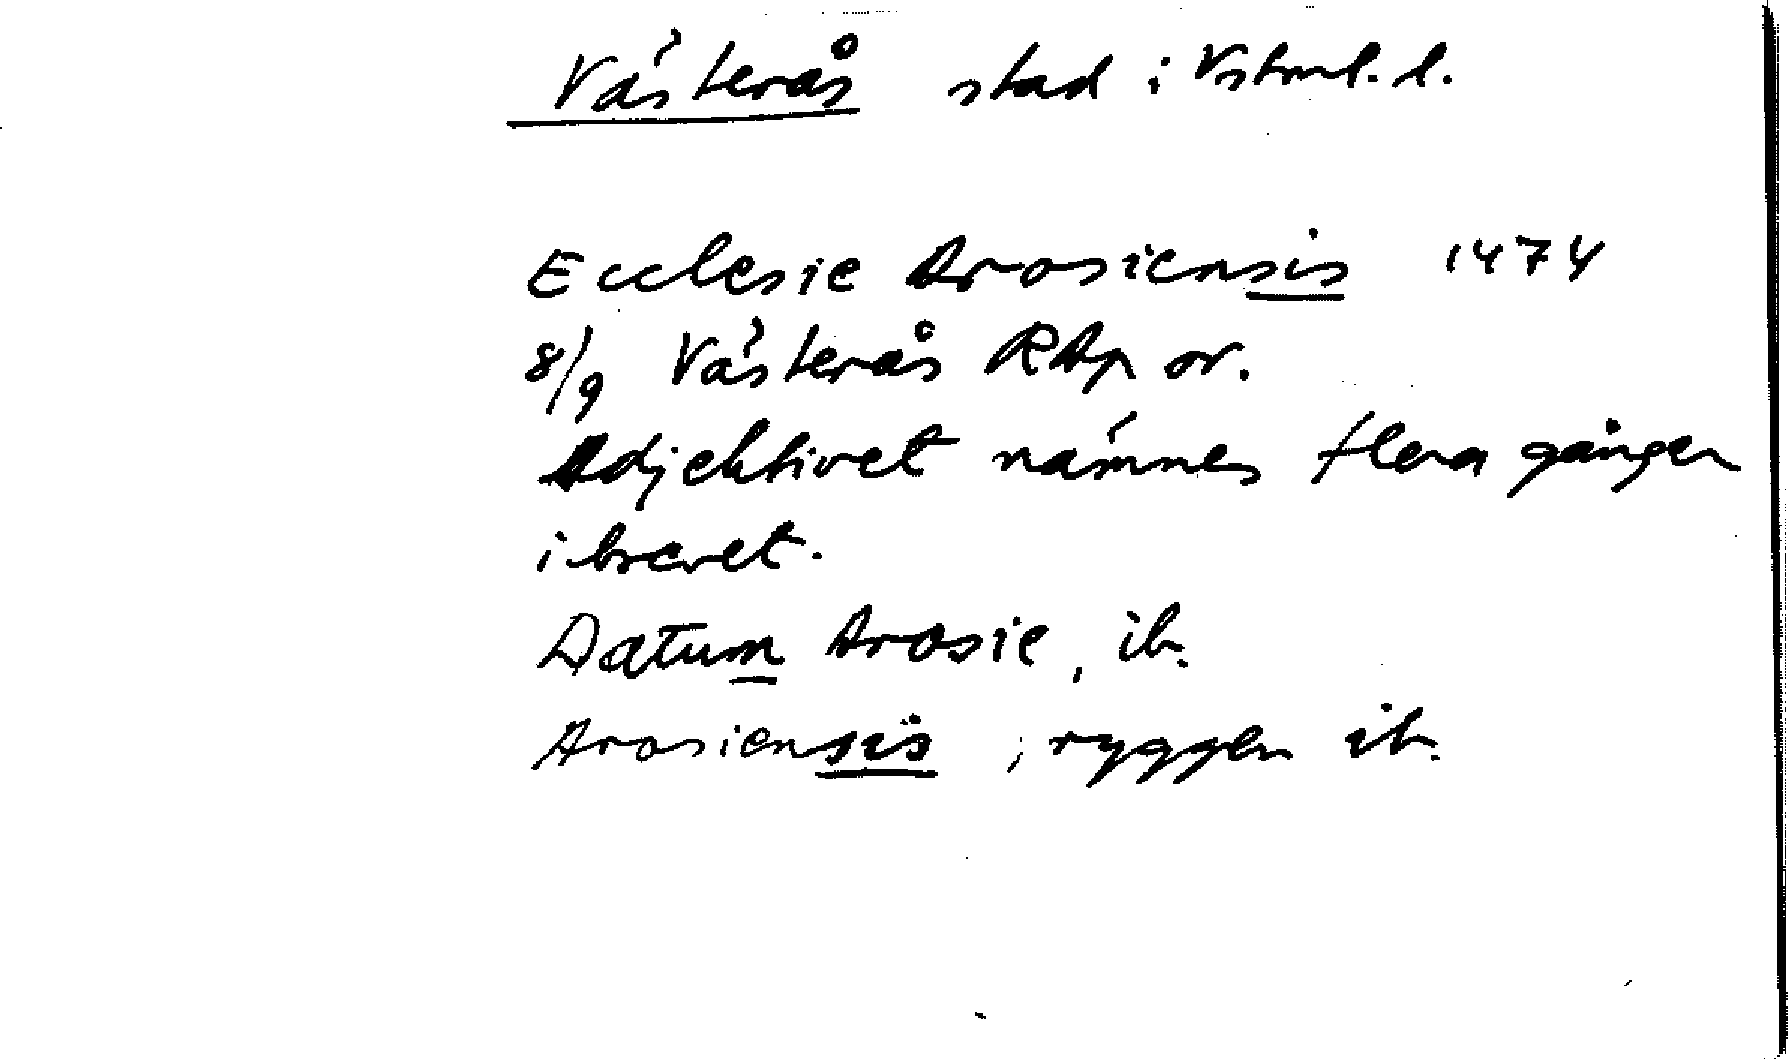 Västerås stad i Vstml. l.
Ecclesie Arosiensis 1474
8/9 Västerås RAp or.
Adjektivet nämnes flera gånger
i brevet.
Datum Arosie, ib.
Arosiensis, ryggen ib.